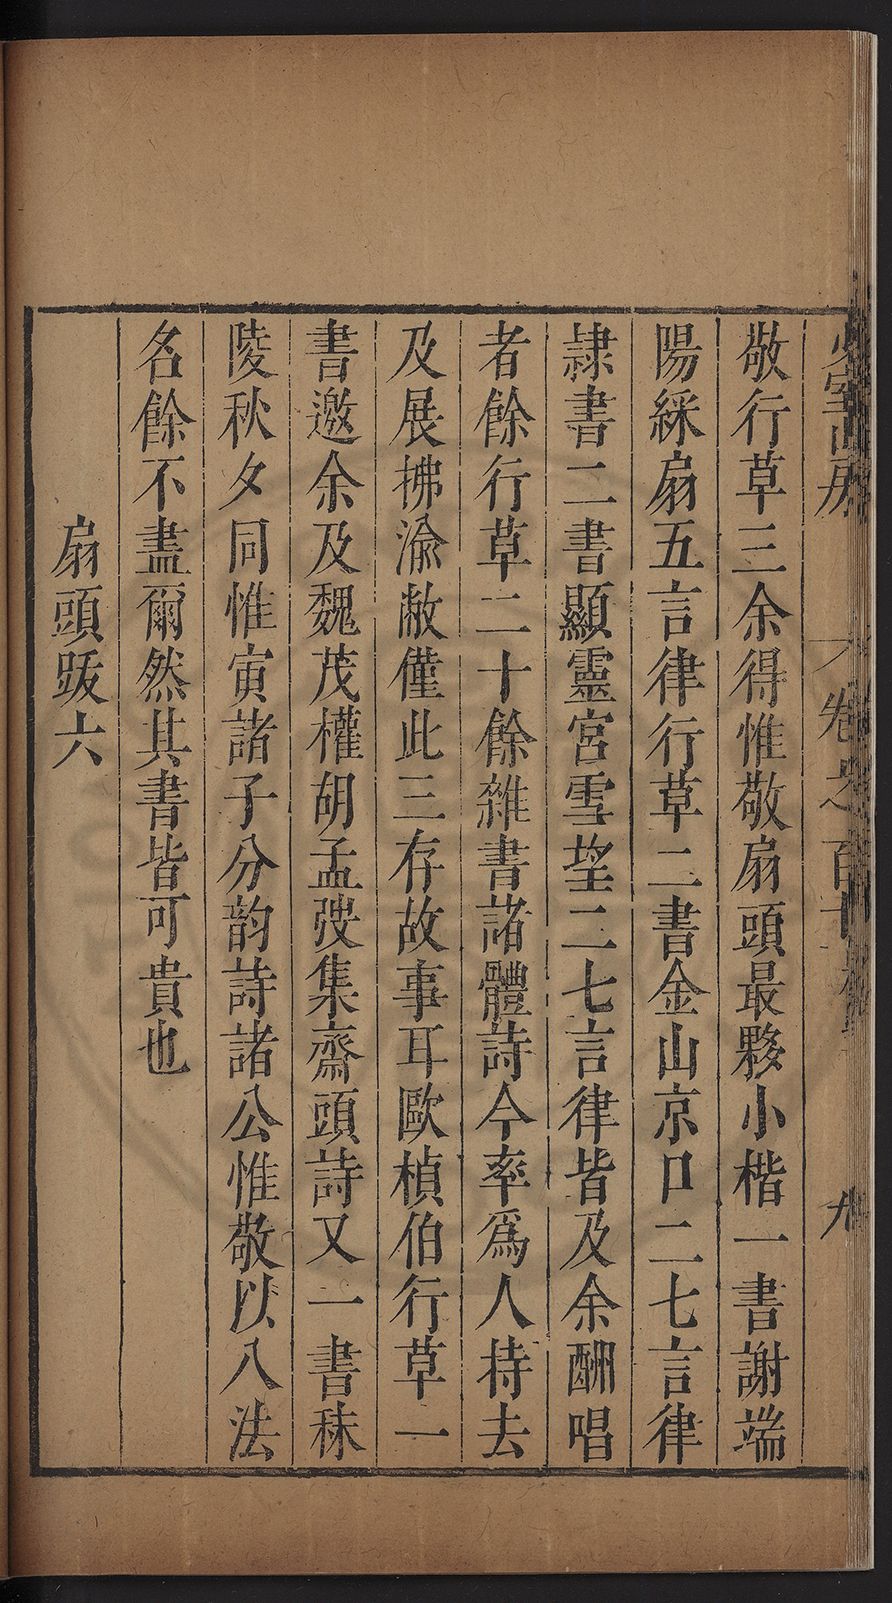 敬行草三余得惟敬扇頭最夥小楷一書謝端
陽綵扇五言律行草二書金山京口二七言律
隷書二書顯靈宮雪望二七言律皆及余酬唱
者餘行草二十餘雜書諸體詩今率爲人持去
及展拂渝敝僅此三存故事耳歐楨伯行草一
書邀余及魏茂權胡孟弢集齋頭詩又一書秣
陵秋夕同惟寅諸子分韵詩諸公惟敬以八法
名餘不盡爾然其書皆可貴也
扇頭跋六